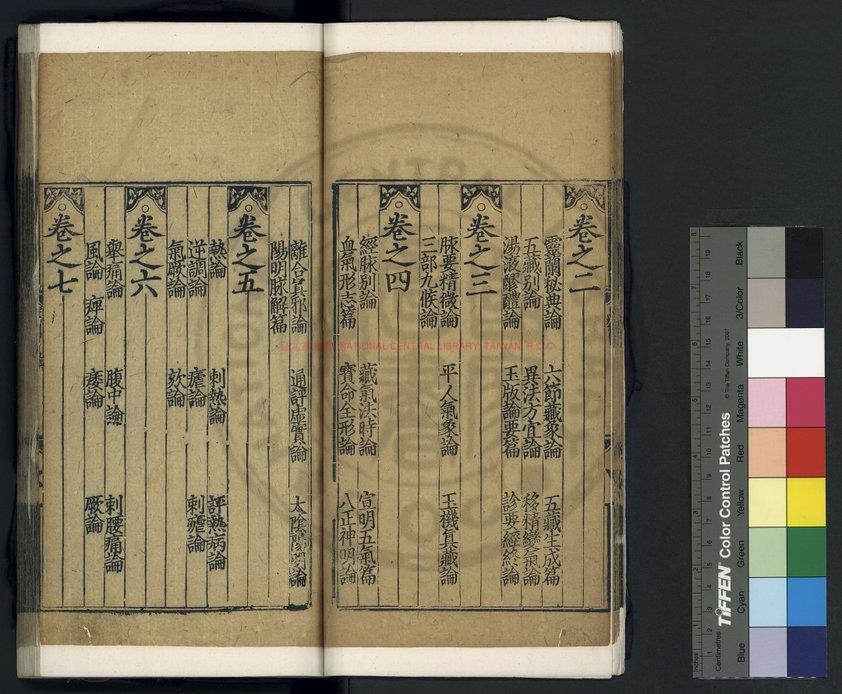 卷之二
靈蘭秘典論　六節藏象論　五藏生成篇
五藏別論　異法方宜論　移精變氣論
湯液醪醴論　玉版論要篇　診要經終論
卷之三
脉要精微論　平人氣象論　玉機真藏論
三部九候論
卷之四
經脉別論　藏氣法時論　宣明五氣篇
血氣形志篇　寶命全形論　八正神明論
離合真邪論　通評虛實論　太陰陽明論
陽明脉解篇
卷之五
熱論　刺熱論　評熱病論
逆調論　瘧論　刺瘧論
氣厥論　欬論
卷之六
舉痛論　腹中論　刺腰痛論
風論　痺論　痿論　厥論
卷之七
NATIONAL CENTRAL LIBRARY, TAIWAN, R.O.C.
TIFFEN Color Control Patches
© The Tiffen Company, 2007
Blue
Cyan
Green
Yellow
Red
Magenta
White
3/Color
Black
Inches
Centimetres